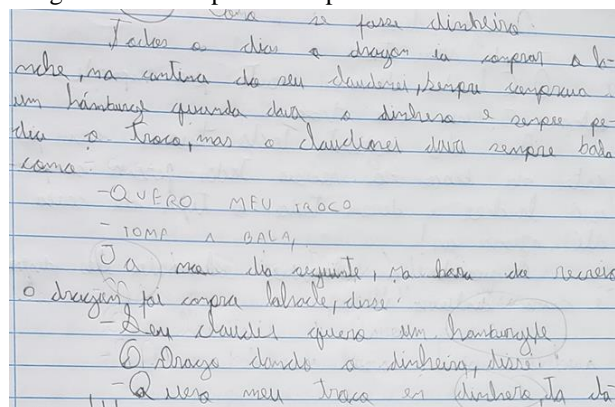 Como se faser dinheiro
Todos o dias o dragon ia comprar a lo-
nche, na cantina do seu claudiones, senpre comprava
um hámburgê quando dava o dinhero e senpre pe-
dia o troco, mas o claudiones dava senpre bala
como:
-QUERO MEU TROCO
-TOMA A BALA,
Ja no dia seguinte, na hora do recreio
o dragon, foi compra lahache, disse:
-Seu claudis quero um hamburgyle
O Drago dando o dinheiro, disse:
-Quero meu troco en dinhero, Ja da